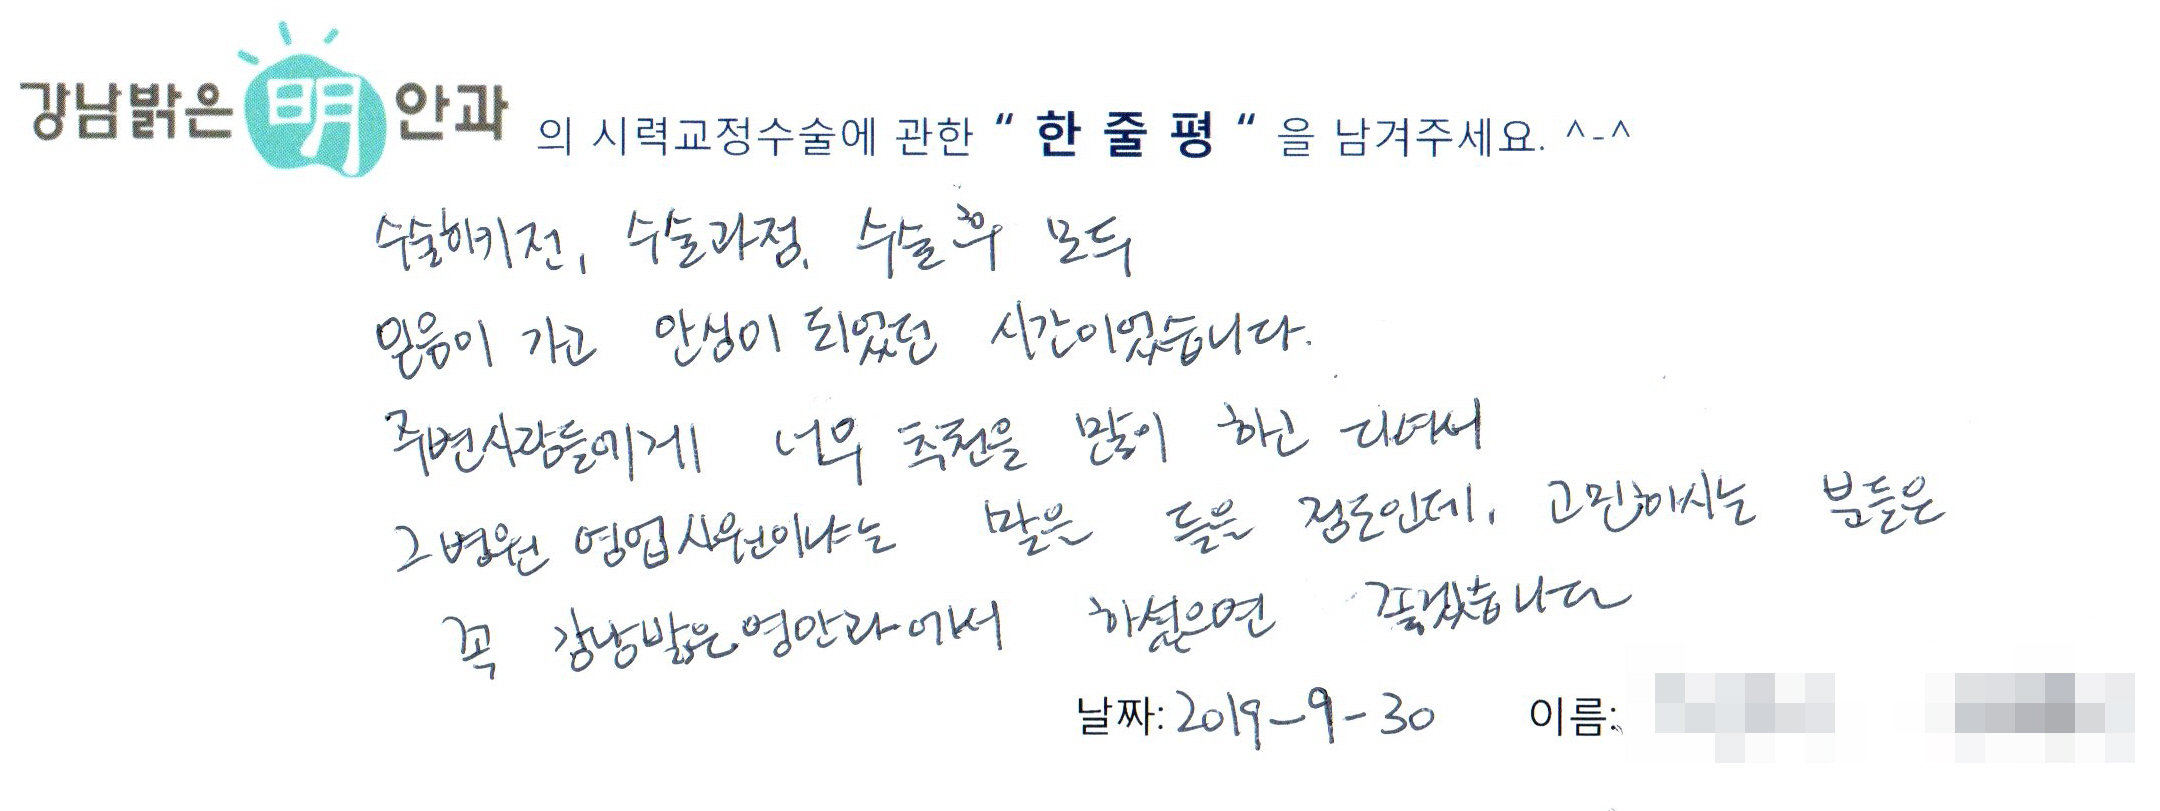 강남밝은 明 안과 의 시력교정수술에 관한 “ 한 줄 평 “ 을 남겨주세요. ^-^
수술하기전, 수술과정, 수술 후 모두
믿음이 가고 안심이 되었던 시간이었습니다.
주변사람들에게 너무 추천을 많이 하고 다녀서
그 병원 영업사원이냐는 말을 들을 정도인데, 고민하시는 분들은
꼭 강남밝은명안과에서 하셨으면 좋겠습니다
날짜: 2019-9-30 이름: